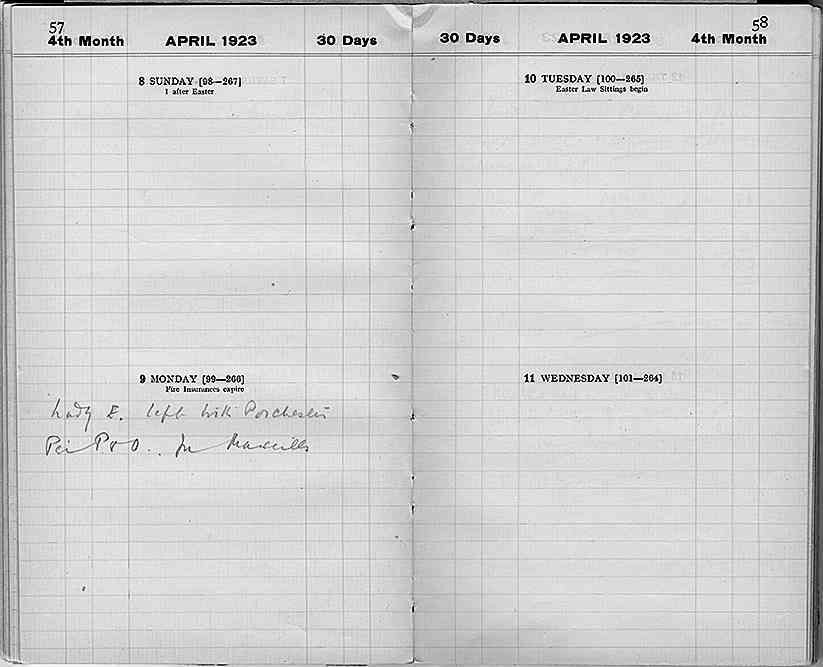 57
4th Month APRIL 1923 30 Days
8 SUNDAY [98—267]
1 after Easter
9 MONDAY [99—266]
Fire Insurances expire
Lady E. left with Porchester
Per P & O. for Marseilles
58
30 Days APRIL 1923 4th Month
10 TUESDAY [100—265]
Easter Law Sittings begin
11 WEDNESDAY [101—264]